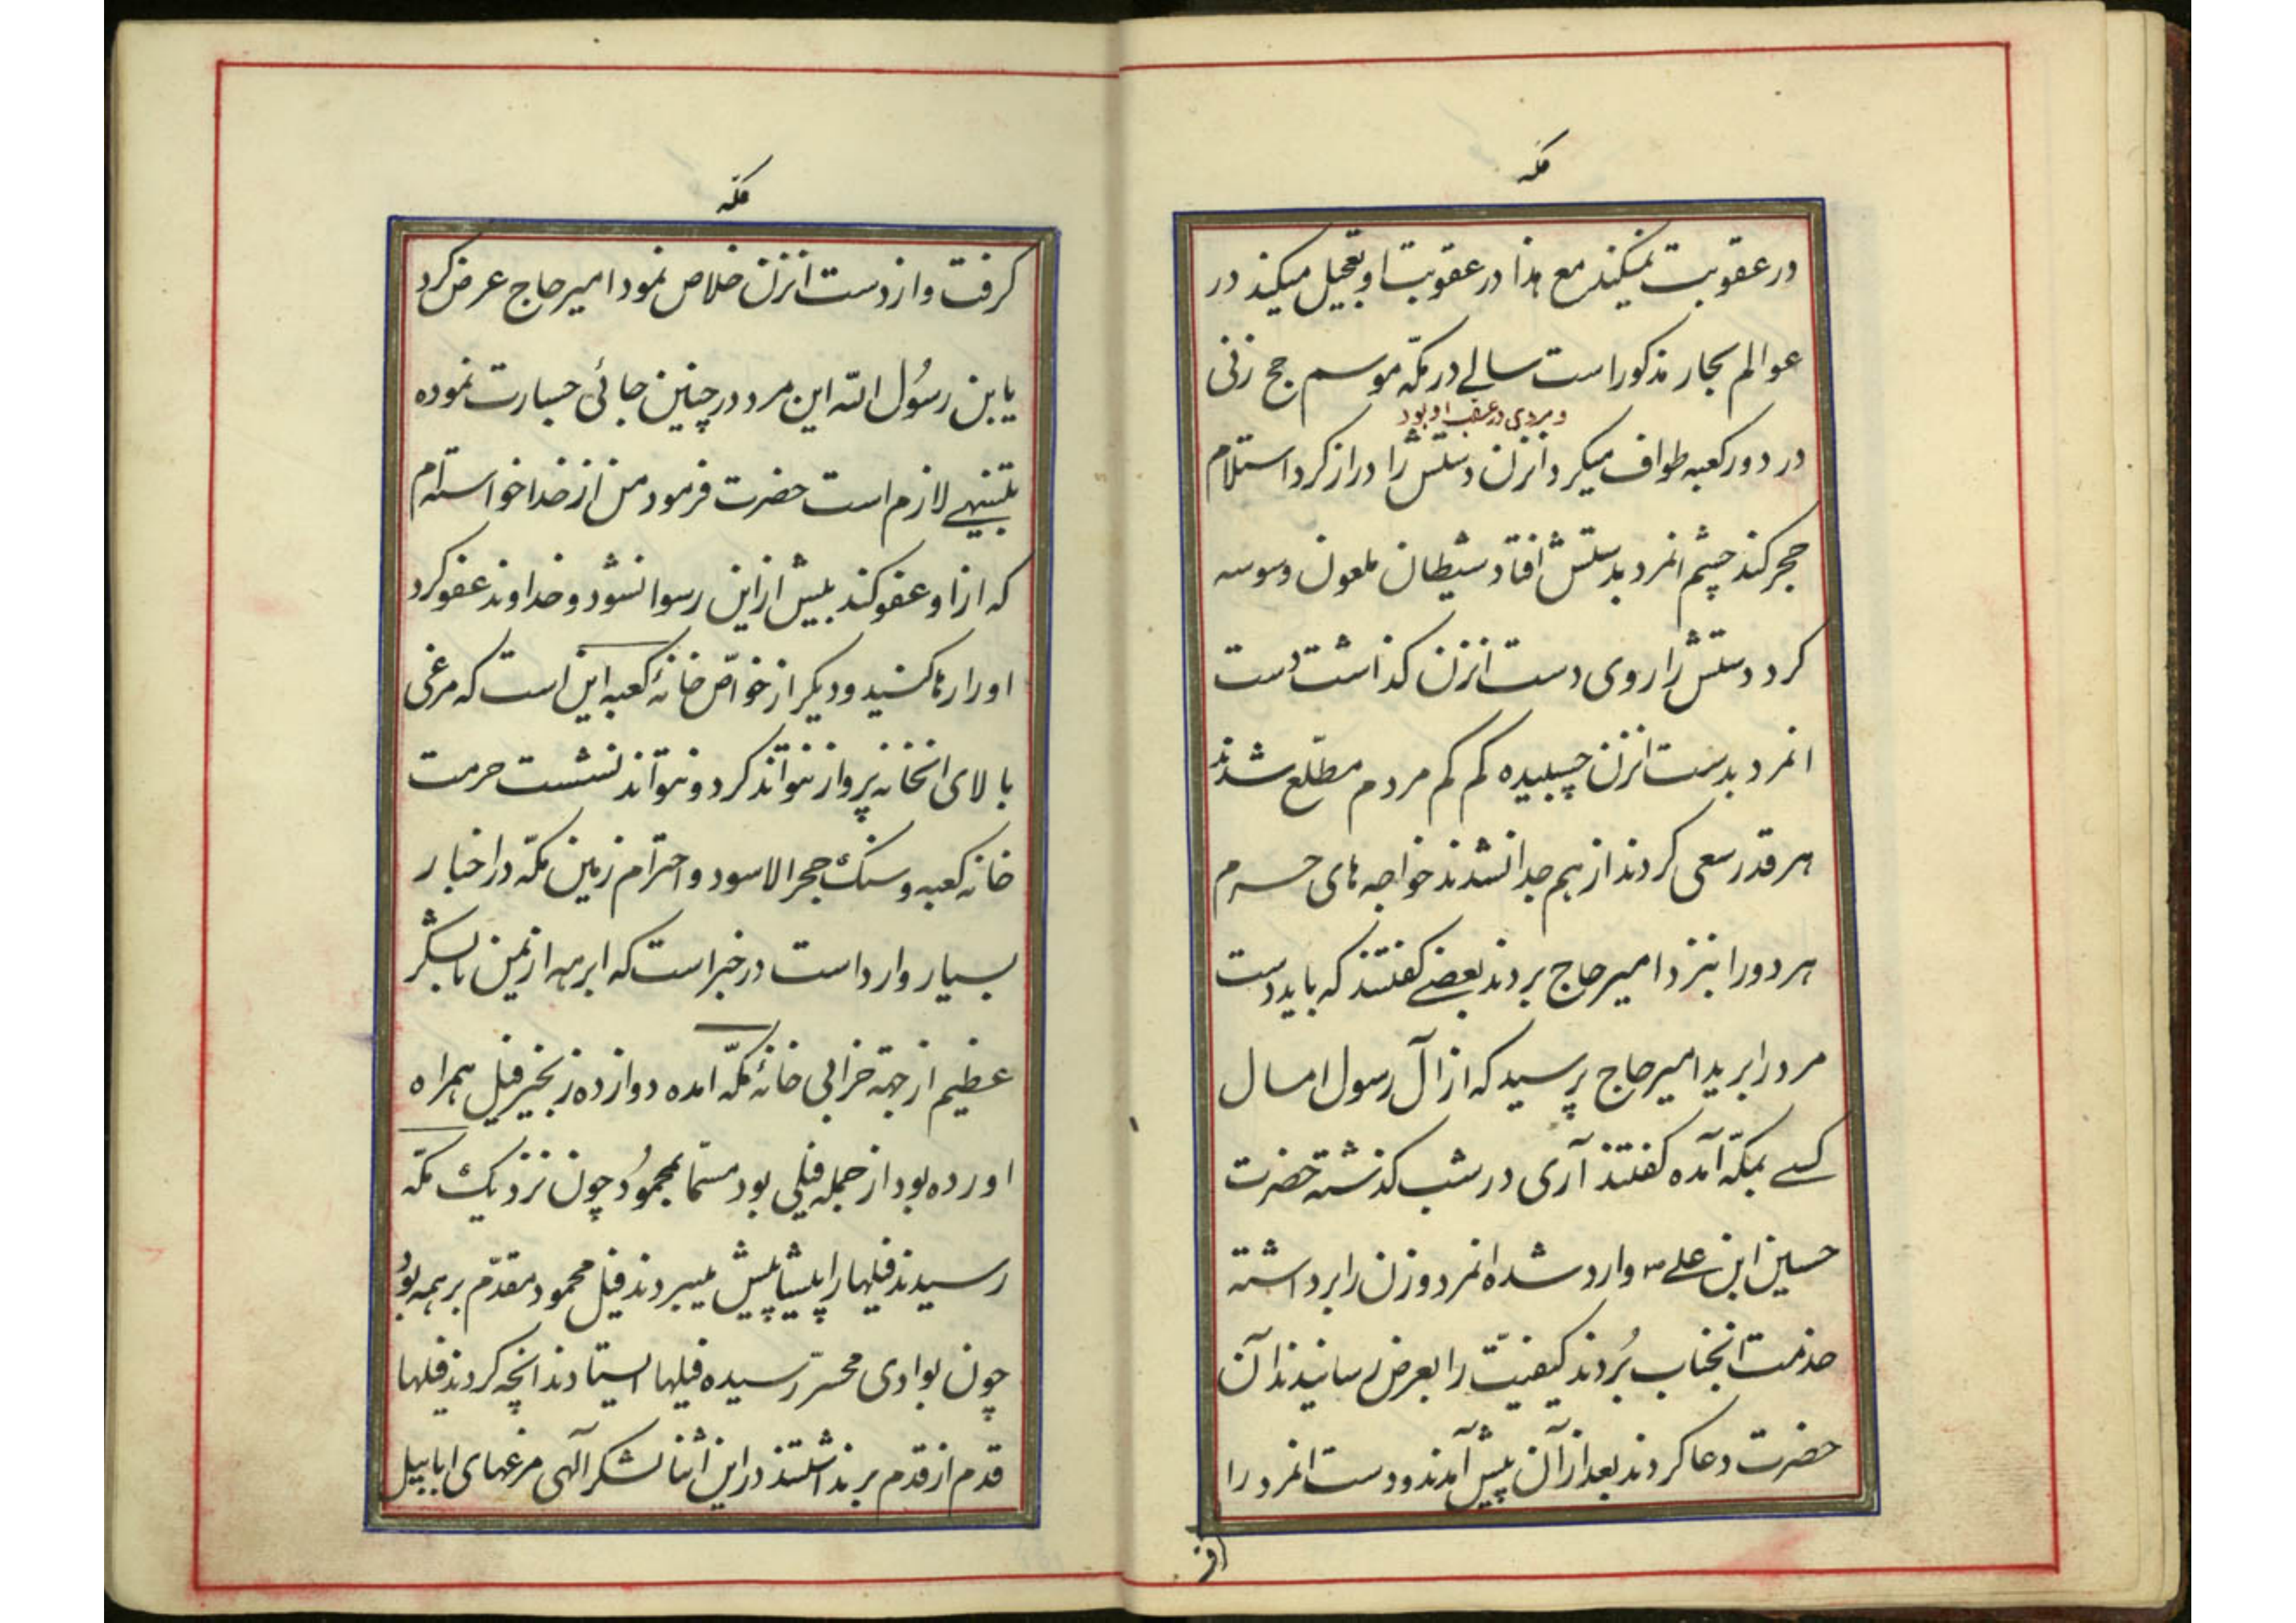 مکه
در عقوبت نمیکند مع هذا در عقوبت او تعجیل میکند در
عوالم بحار مذکور است سالی در مکّه موسم حج زنی
و مردی در عقب او بود
در دور کعبه طواف میکرد انزن دستش را دراز کرد استلام
حجر کند چشم انمرد بدستش افتاد شیطان ملعون وسوسه
کرد دستش را روی دست انزن کذاشت دست
انمرد بدست انزن چسبیده کم کم مردم مطّلع شدند
هر قدر سعی کردند از هم جدا نشدند خواجه های حرم
هر دو را بنزد امیر حاج بردند بعضی کفتند که باید دست
مرد را برید امیر حاج پرسید که از آل رسول امسال
کسی بمکّه آمده کفتند آری در شب کذشته حضرت
حسین ابن علی ع وارد شده انمرد و زن را برداشته
خدمت انجناب بُردند کیفیّت را بعرض رسانیدند آن
حضرت دعا کردند بعد از آن پیش آمدند و دست انمرد را
مکّه
کرفت و از دست انزن خلاص نمود امیر حاج عرض کرد
یابن رسُول الله این مرد در چنین جائی جسارت نموده
تنبیهی لازم است حضرت فرمود من از خدا خواسته‌ام
که از او عفو کند بیش از این رسوا نشود و خداوند عفو کرد
او را رها کنید و دیکر از خواصّ خانهٔ کعبه این است که مرغی
بالای انخانه پرواز نتواند کرد و نتواند نشست حرمت
خانه کعبه و سنک حجر الاسود و احترام زمین مکّه در اخبار
بسیار وارد است در خبر است که ابرهه از یمن با لشکر
عظیم از جهة خرابی خانهٔ مکّه آمده دوازده زنجیر فیل همراه
اورده بود از جمله فیلی بود مسمّا بمحمُود چون نزدیک مکّه
رسیدند فیلها را پیشاپیش میبردند فیل محمود مقدّم بر همه بود
چون بوادی محسّر رسیده فیلها ایستادند انچه کردند فیلها
قدم از قدم بر نداشتند در این اثنا لشکر آلهی مرغهای ابابیل